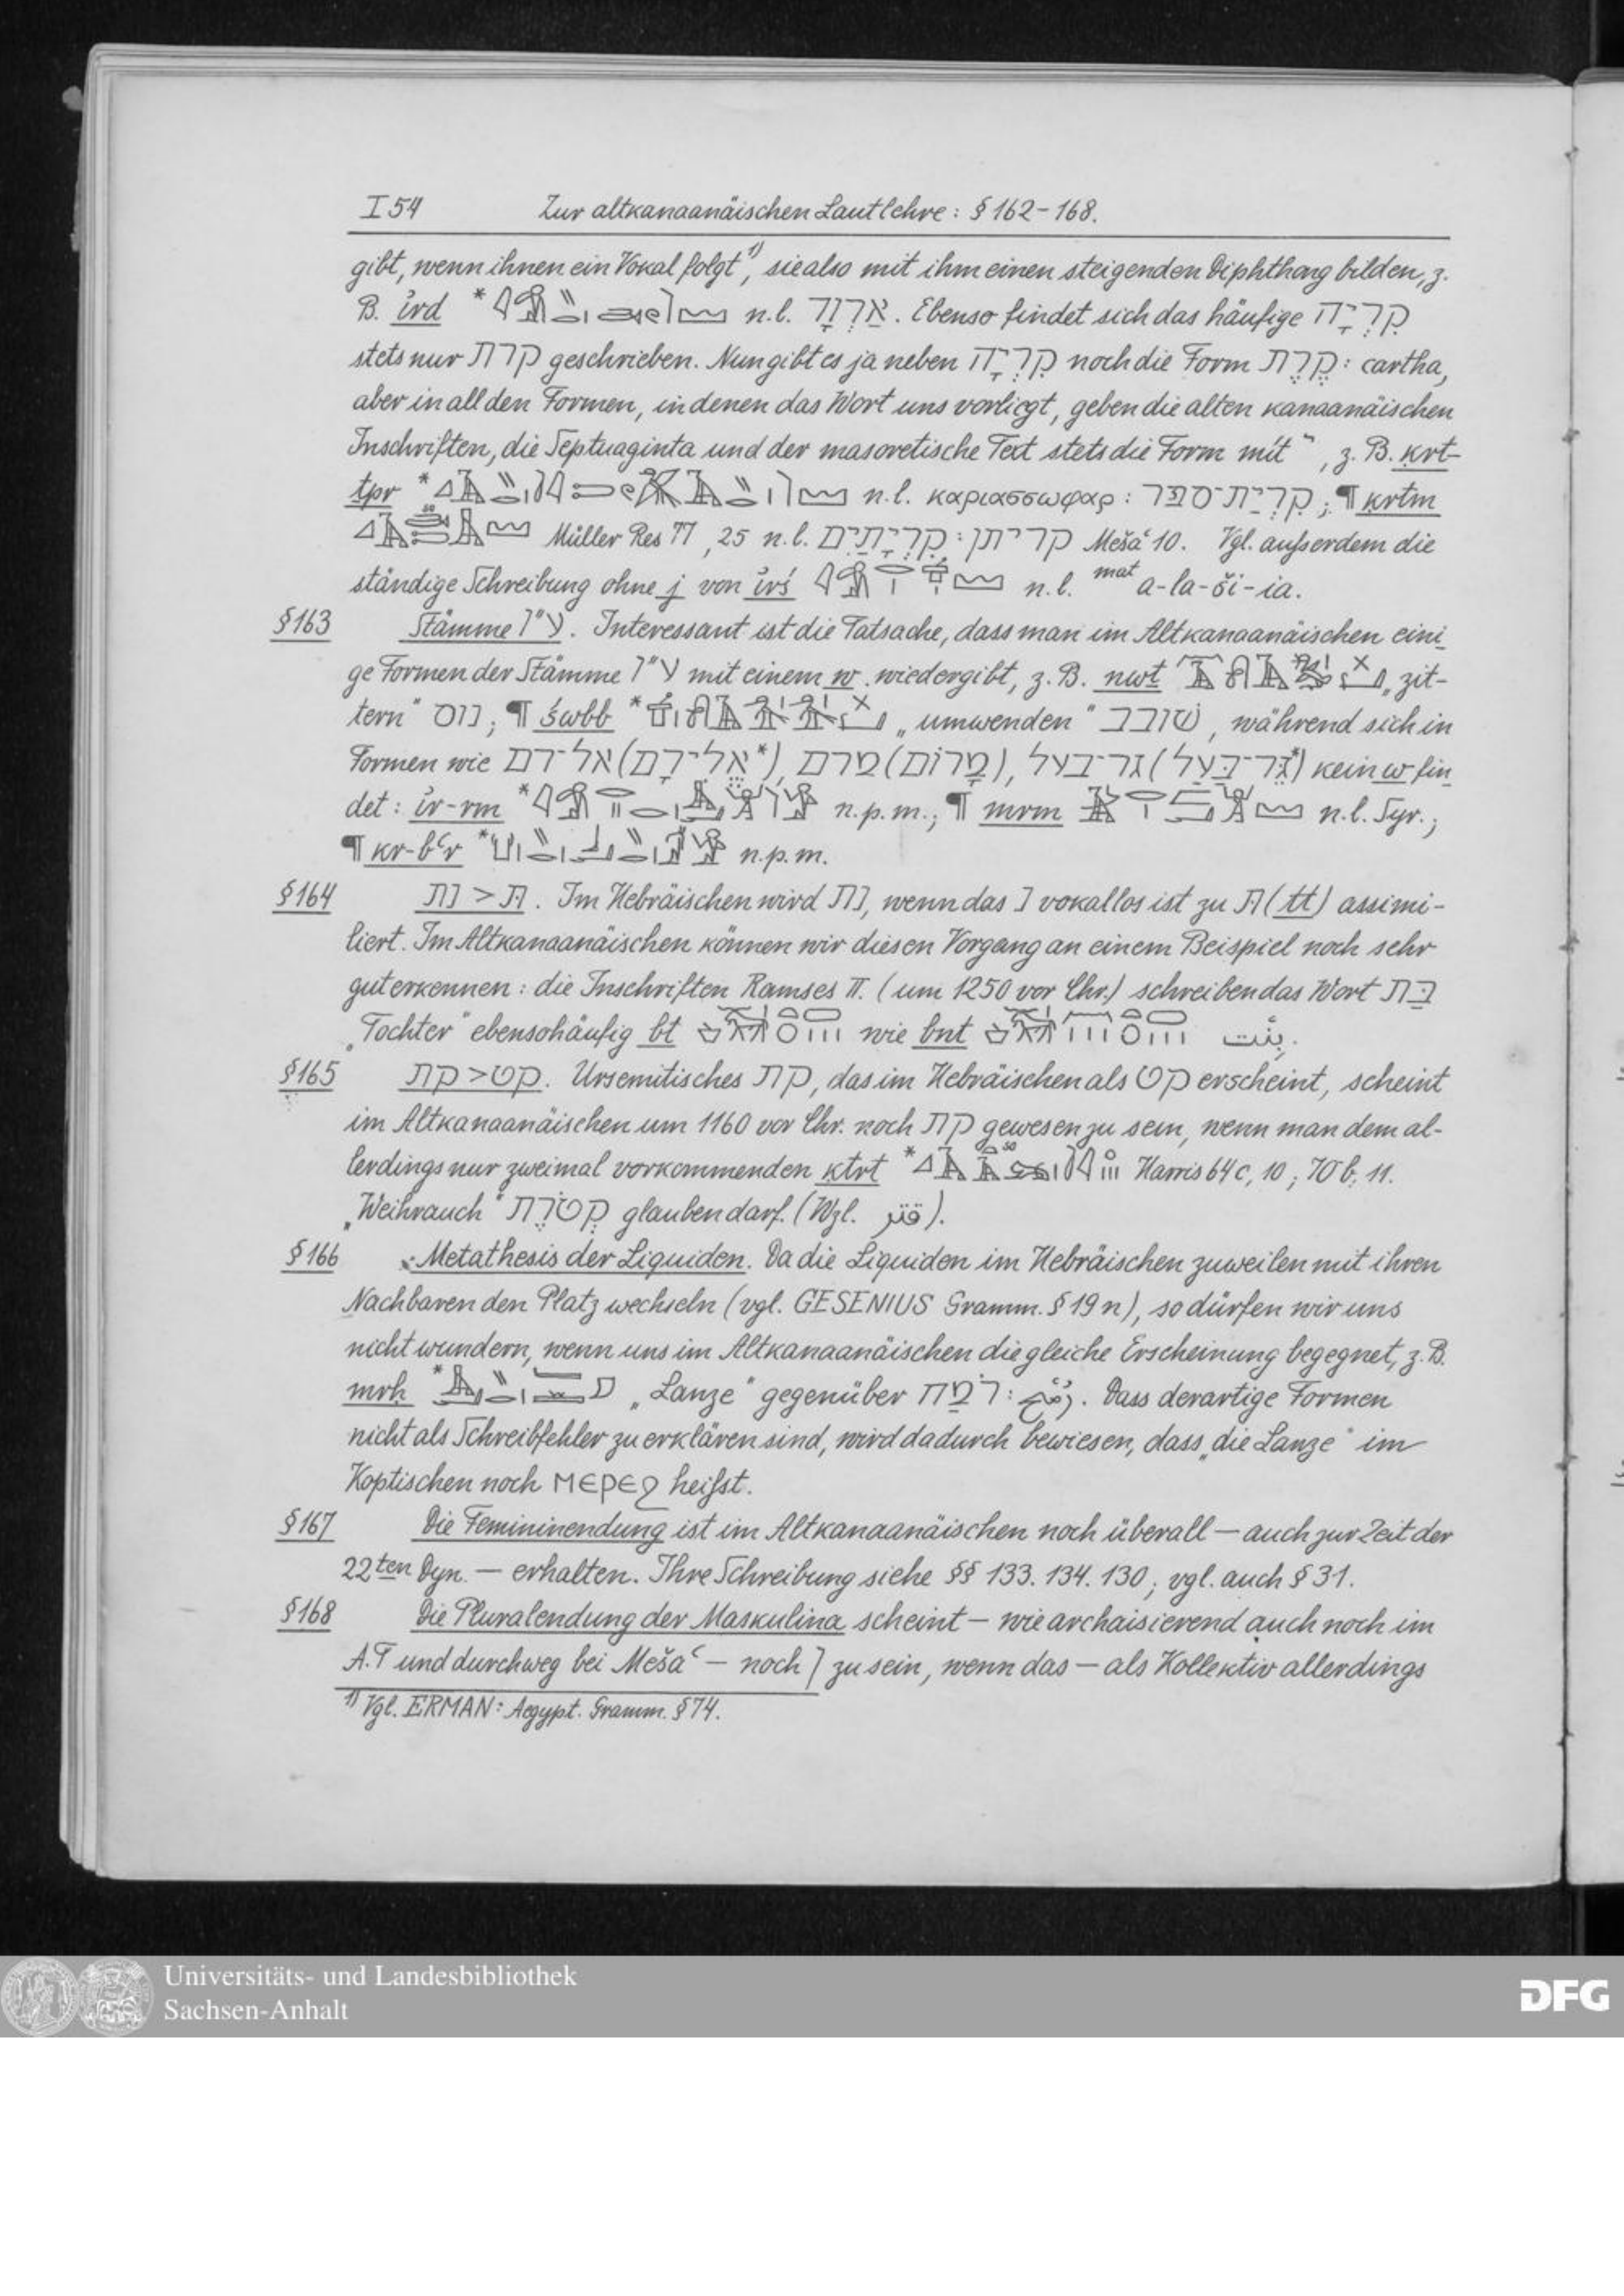 I 54 Zur altkanaanäischen Lautlehre: § 162-168.
gibt, wenn ihnen ein Vokal folgt¹⁾, sie also mit ihm einen steigenden Diphthong bilden, z.
B. i̓rd * n.l. אַרְוָד. Ebenso findet sich das häufige קִרְיָה
stets nur קרת geschrieben. Nun gibt es ja neben קִרְיָה noch die Form קֶרֶת: cartha,
aber in all den Formen, in denen das Wort uns vorliegt, geben die alten kanaanäischen
Inschriften, die Septuaginta und der masoretische Text stets die Form mit י, z. B. ḳrt-
tpr * n.l. καριασσωφαρ: קִרְיַת־סֵפֶר; ¶ ḳrtm
Müller Res 77, 25 n.l. קִרְיָתַיִם: קריתן Mešaʿ 10. Vgl. außerdem die
ständige Schreibung ohne j von i̓rś n.l. mat a-la-ši-ia.
§163 Stämme ע״ו. Interessant ist die Tatsache, dass man im Altkanaanäischen eini
ge Formen der Stämme ע״ו mit einem w wiedergibt, z. B. nwt „zit-
tern“ נוס; ¶ śwbb * „umwenden“ שׁובב, während sich in
Formen wie אל־רם (*אֱלִירָם), מרם (מָרוֹם), גר־בעל (*גֵּר־בַּעַל) kein w fin
det: i̓r-rm * n.p.m.; ¶ mrm n.l. Syr.;
¶ kr-bʿr * n.p.m.
§164 נת > תּ. Im Hebräischen wird נת, wenn das נ vokallos ist zu תּ (tt) assimi-
liert. Im Altkanaanäischen können wir diesen Vorgang an einem Beispiel noch sehr
gut erkennen: die Inschriften Ramses II. (um 1250 vor Chr.) schreiben das Wort בַּת
„Tochter“ ebensohäufig bt wie bnt بِنْت.
§165 קת > קט. Ursemitisches קת, das im Hebräischen als קט erscheint, scheint
im Altkanaanäischen um 1160 vor Chr. noch קת gewesen zu sein, wenn man dem al-
lerdings nur zweimal vorkommenden ḳtrt * Harris 64 c, 10; 70 b, 11.
„Weihrauch“ קְטֹרֶת glauben darf. (Wzl. قتر).
§166 Metathesis der Liquiden. Da die Liquiden im Hebräischen zuweilen mit ihren
Nachbaren den Platz wechseln (vgl. GESENIUS Gramm. § 19 n), so dürfen wir uns
nicht wundern, wenn uns im Altkanaanäischen die gleiche Erscheinung begegnet, z. B.
mrḥ * „Lanze“ gegenüber רֹמַח: رُمْح. Dass derartige Formen
nicht als Schreibfehler zu erklären sind, wird dadurch bewiesen, dass „die Lanze“ im
Koptischen noch ⲙⲉⲣⲉϩ heißt.
§167 Die Femininendung ist im Altkanaanäischen noch überall — auch zur Zeit der
22ten Dyn. — erhalten. Ihre Schreibung siehe §§ 133. 134. 130; vgl. auch § 31.
§168 Die Pluralendung der Maskulina scheint — wie archaisierend auch noch im
A.T und durchweg bei Mešaʿ — noch ן zu sein, wenn das — als Kollektiv allerdings
¹⁾ Vgl. ERMAN: Aegypt. Gramm. § 74.
Universitäts- und Landesbibliothek
Sachsen-Anhalt
DFG